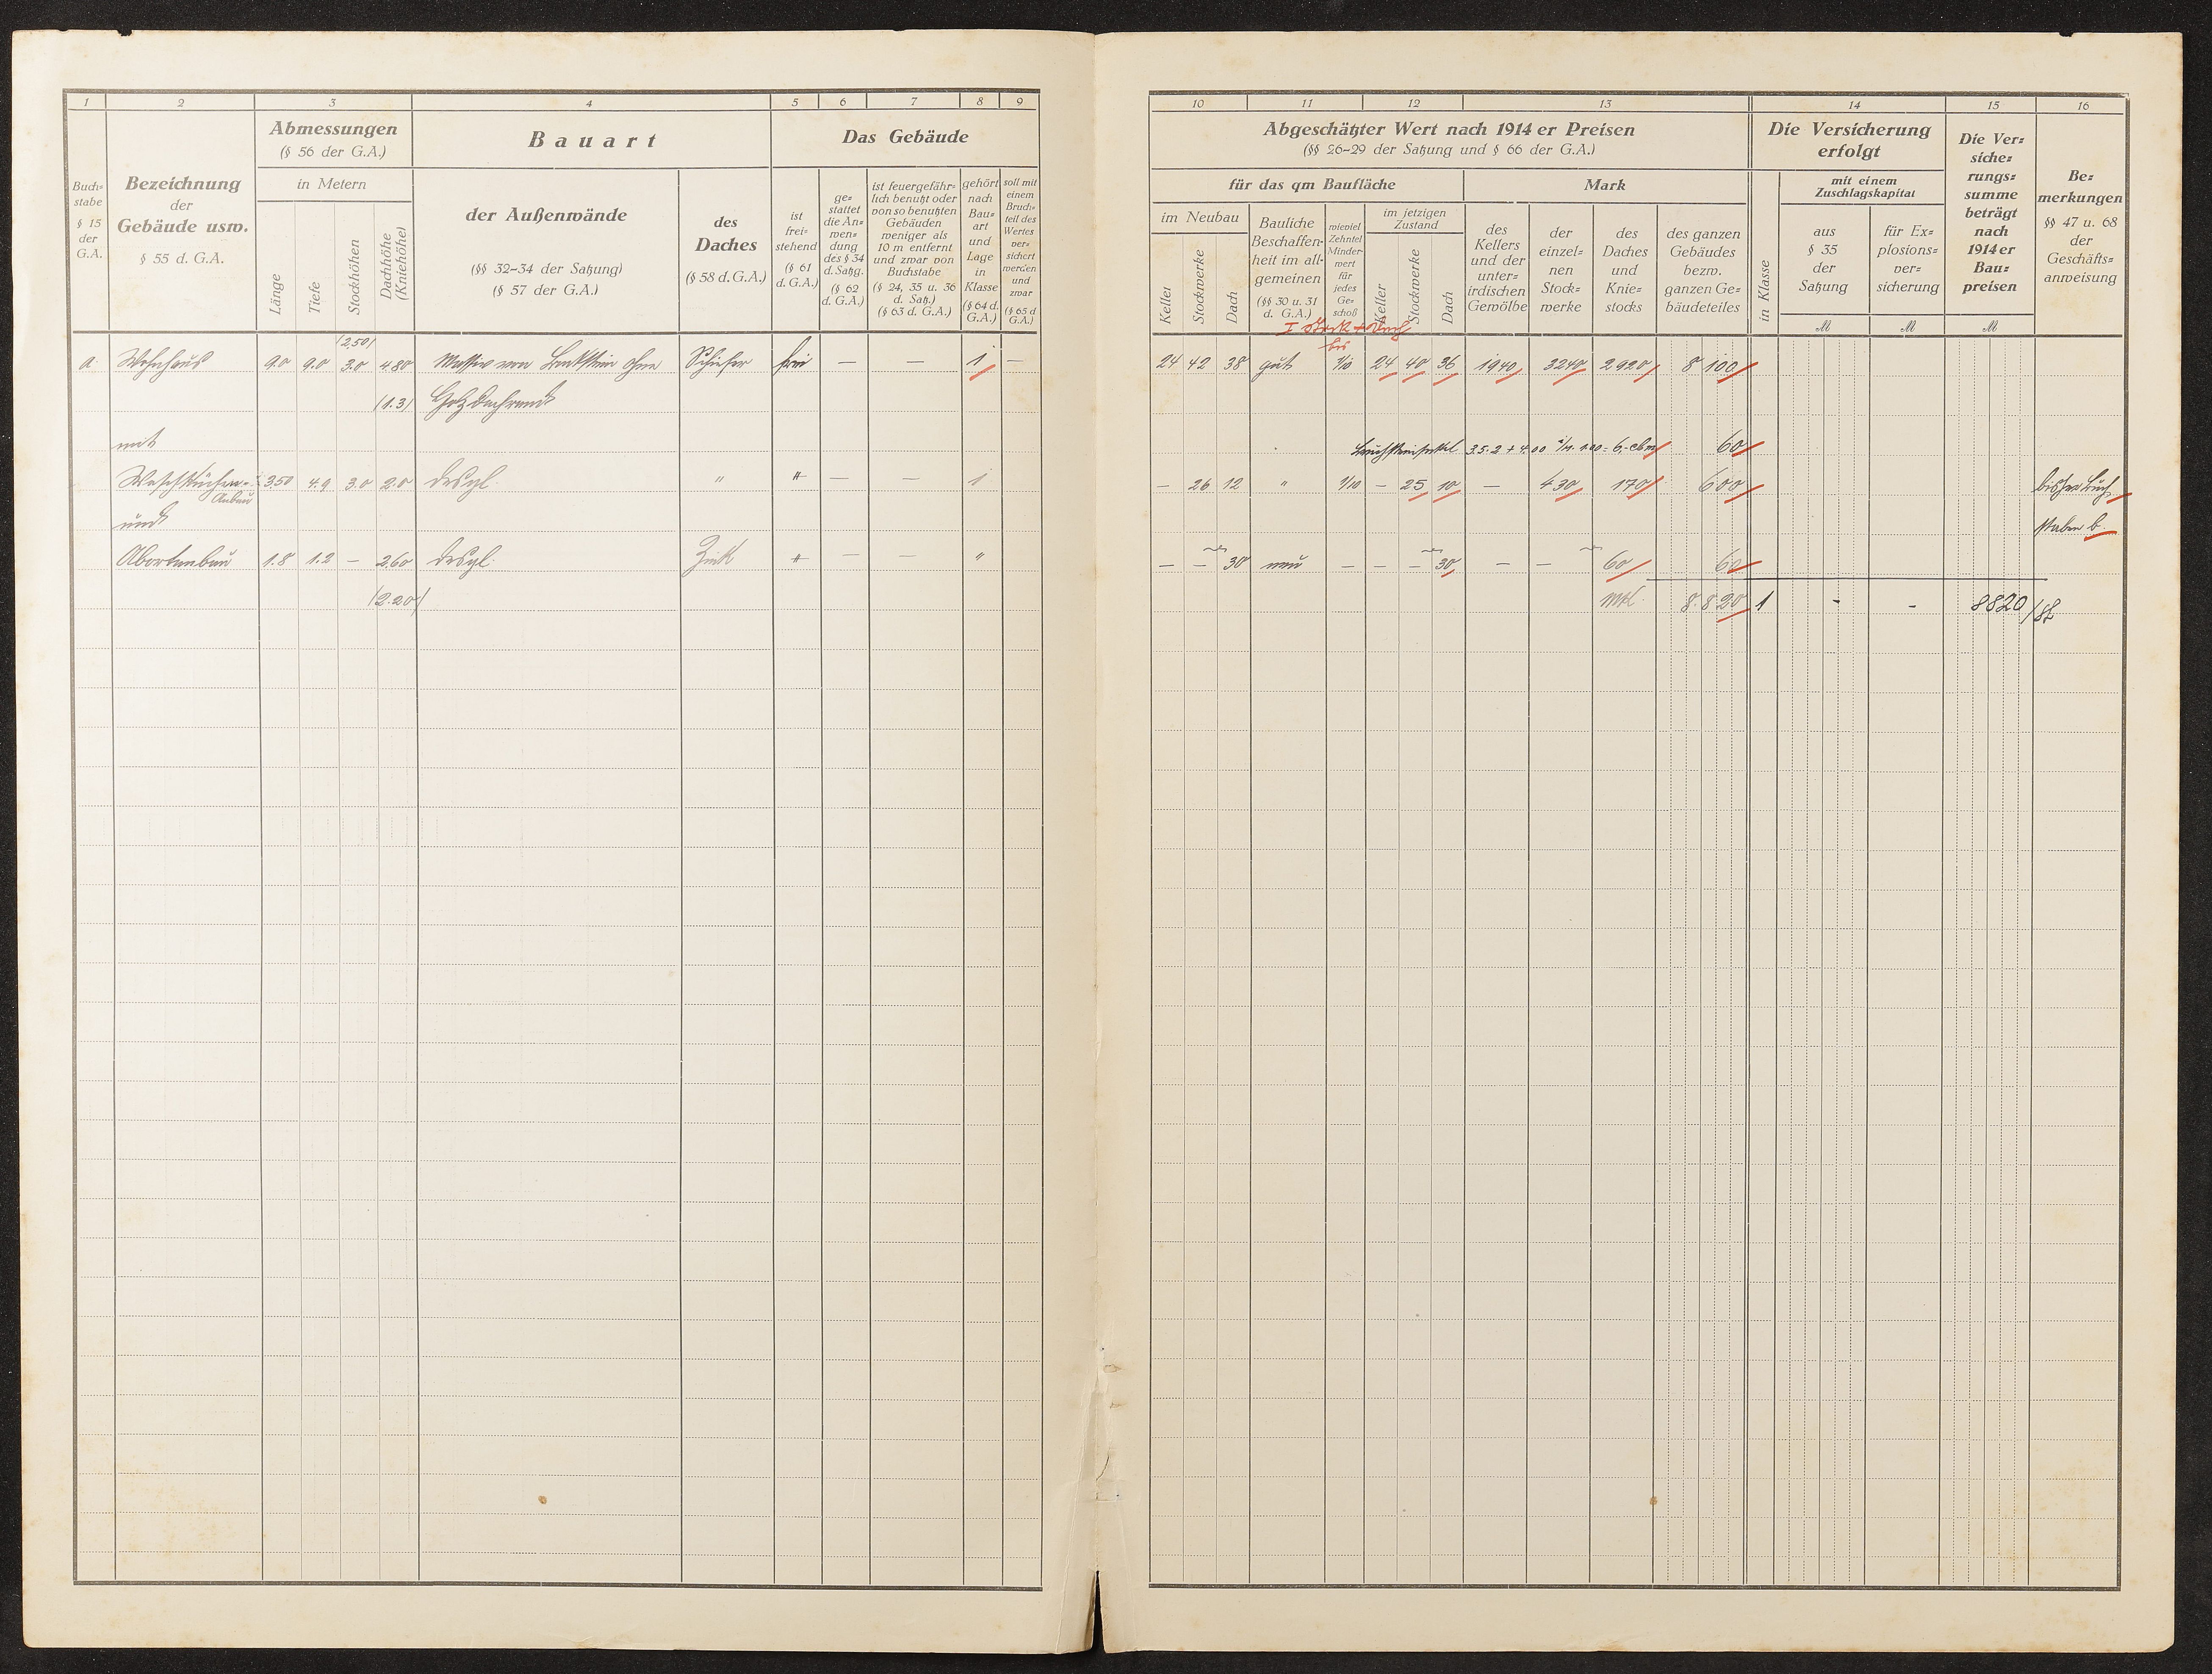 1 2 3 4 5 6 7 8 9
Buch=
stabe
§ 15
der
G.A.
Bezeichnung
der
Gebäude usw.
§ 55 d. G.A.
Abmessungen
(§ 56 der G.A.)
in Metern
Länge
Tiefe
Stockhöhen
Dachhöhe
(Kniehöhe)
Bauart
der Außenwände
(§§ 32–34 der Satzung)
(§ 57 der G.A.)
des
Daches
(§ 58 d. G.A.)
Das Gebäude
ist
frei=
stehend
(§ 61
d. G.A.)
ge=
stattet
die An=
wen=
dung
des § 34
d. Satzg.
(§ 62
d. G.A.)
ist feuergefähr=
lich benutzt oder
von so benutzten
Gebäuden
weniger als
10 m entfernt
und zwar von
Buchstabe
(§ 24, 35 u. 36
d. Satz.)
(§ 63 d. G.A.)
gehört
nach
Bau=
art
und
Lage
in
Klasse
(§ 64 d.
G.A.)
soll mit
einem
Bruch=
teil des
Wertes
ver=
sichert
werden
und
zwar
(§ 65 d
G.A.)
(2,50)
a Wohnhaus 9.0 9.0 3.0 4.80 Massiv von Backstein ohne Schiefer frei — — 1 —
(1.3) Holzdachrand
mit
Waschküchen- 3,50 4.9 3.0 2.0 desgl. " " — — 1
Anbau
und
Abortanbau 1.8 1.2 — 2.60 desgl. Zink " — — "
(2.20)
10 11 12 13 14 15 16
Abgeschätzter Wert nach 1914 er Preisen
(§§ 26–29 der Satzung und § 66 der G.A.)
für das qm Baufläche
im Neubau
Keller
Stockwerke
Dach
Bauliche
Beschaffen=
heit im all=
gemeinen
(§§ 30 u. 31
d. G.A.)
wieviel
Zehntel
Minder=
wert
für
jedes
Ge=
schoß
im jetzigen
Zustand
Keller
Stockwerke
Dach
Mark
des
Kellers
und der
unter=
irdischen
Gewölbe
der
einzel=
nen
Stock=
werke
des
Daches
und
Knie=
stocks
des ganzen
Gebäudes
bezw.
ganzen Ge=
bäudeteiles
Die Versicherung
erfolgt
in Klasse
mit einem
Zuschlagskapital
aus
§ 35
der
Satzung
M
für Ex=
plosions=
ver=
sicherung
M
Die Ver=
siche=
rungs=
summe
beträgt
nach
1914 er
Bau=
preisen
M
Be=
merkungen
§§ 47 u. 68
der
Geschäfts=
anweisung
I Stock + Dach
bis
24 42 38 gut 1/10 24 40 36 1940 3240 2920 8 100
60
— 26 12 " 1/10 — 25 10 — 430 170 600 bisher Buch
staben b.
— — 30 neu — — — 30 — — 60 60
Mk. 8.820 1 - - 8820